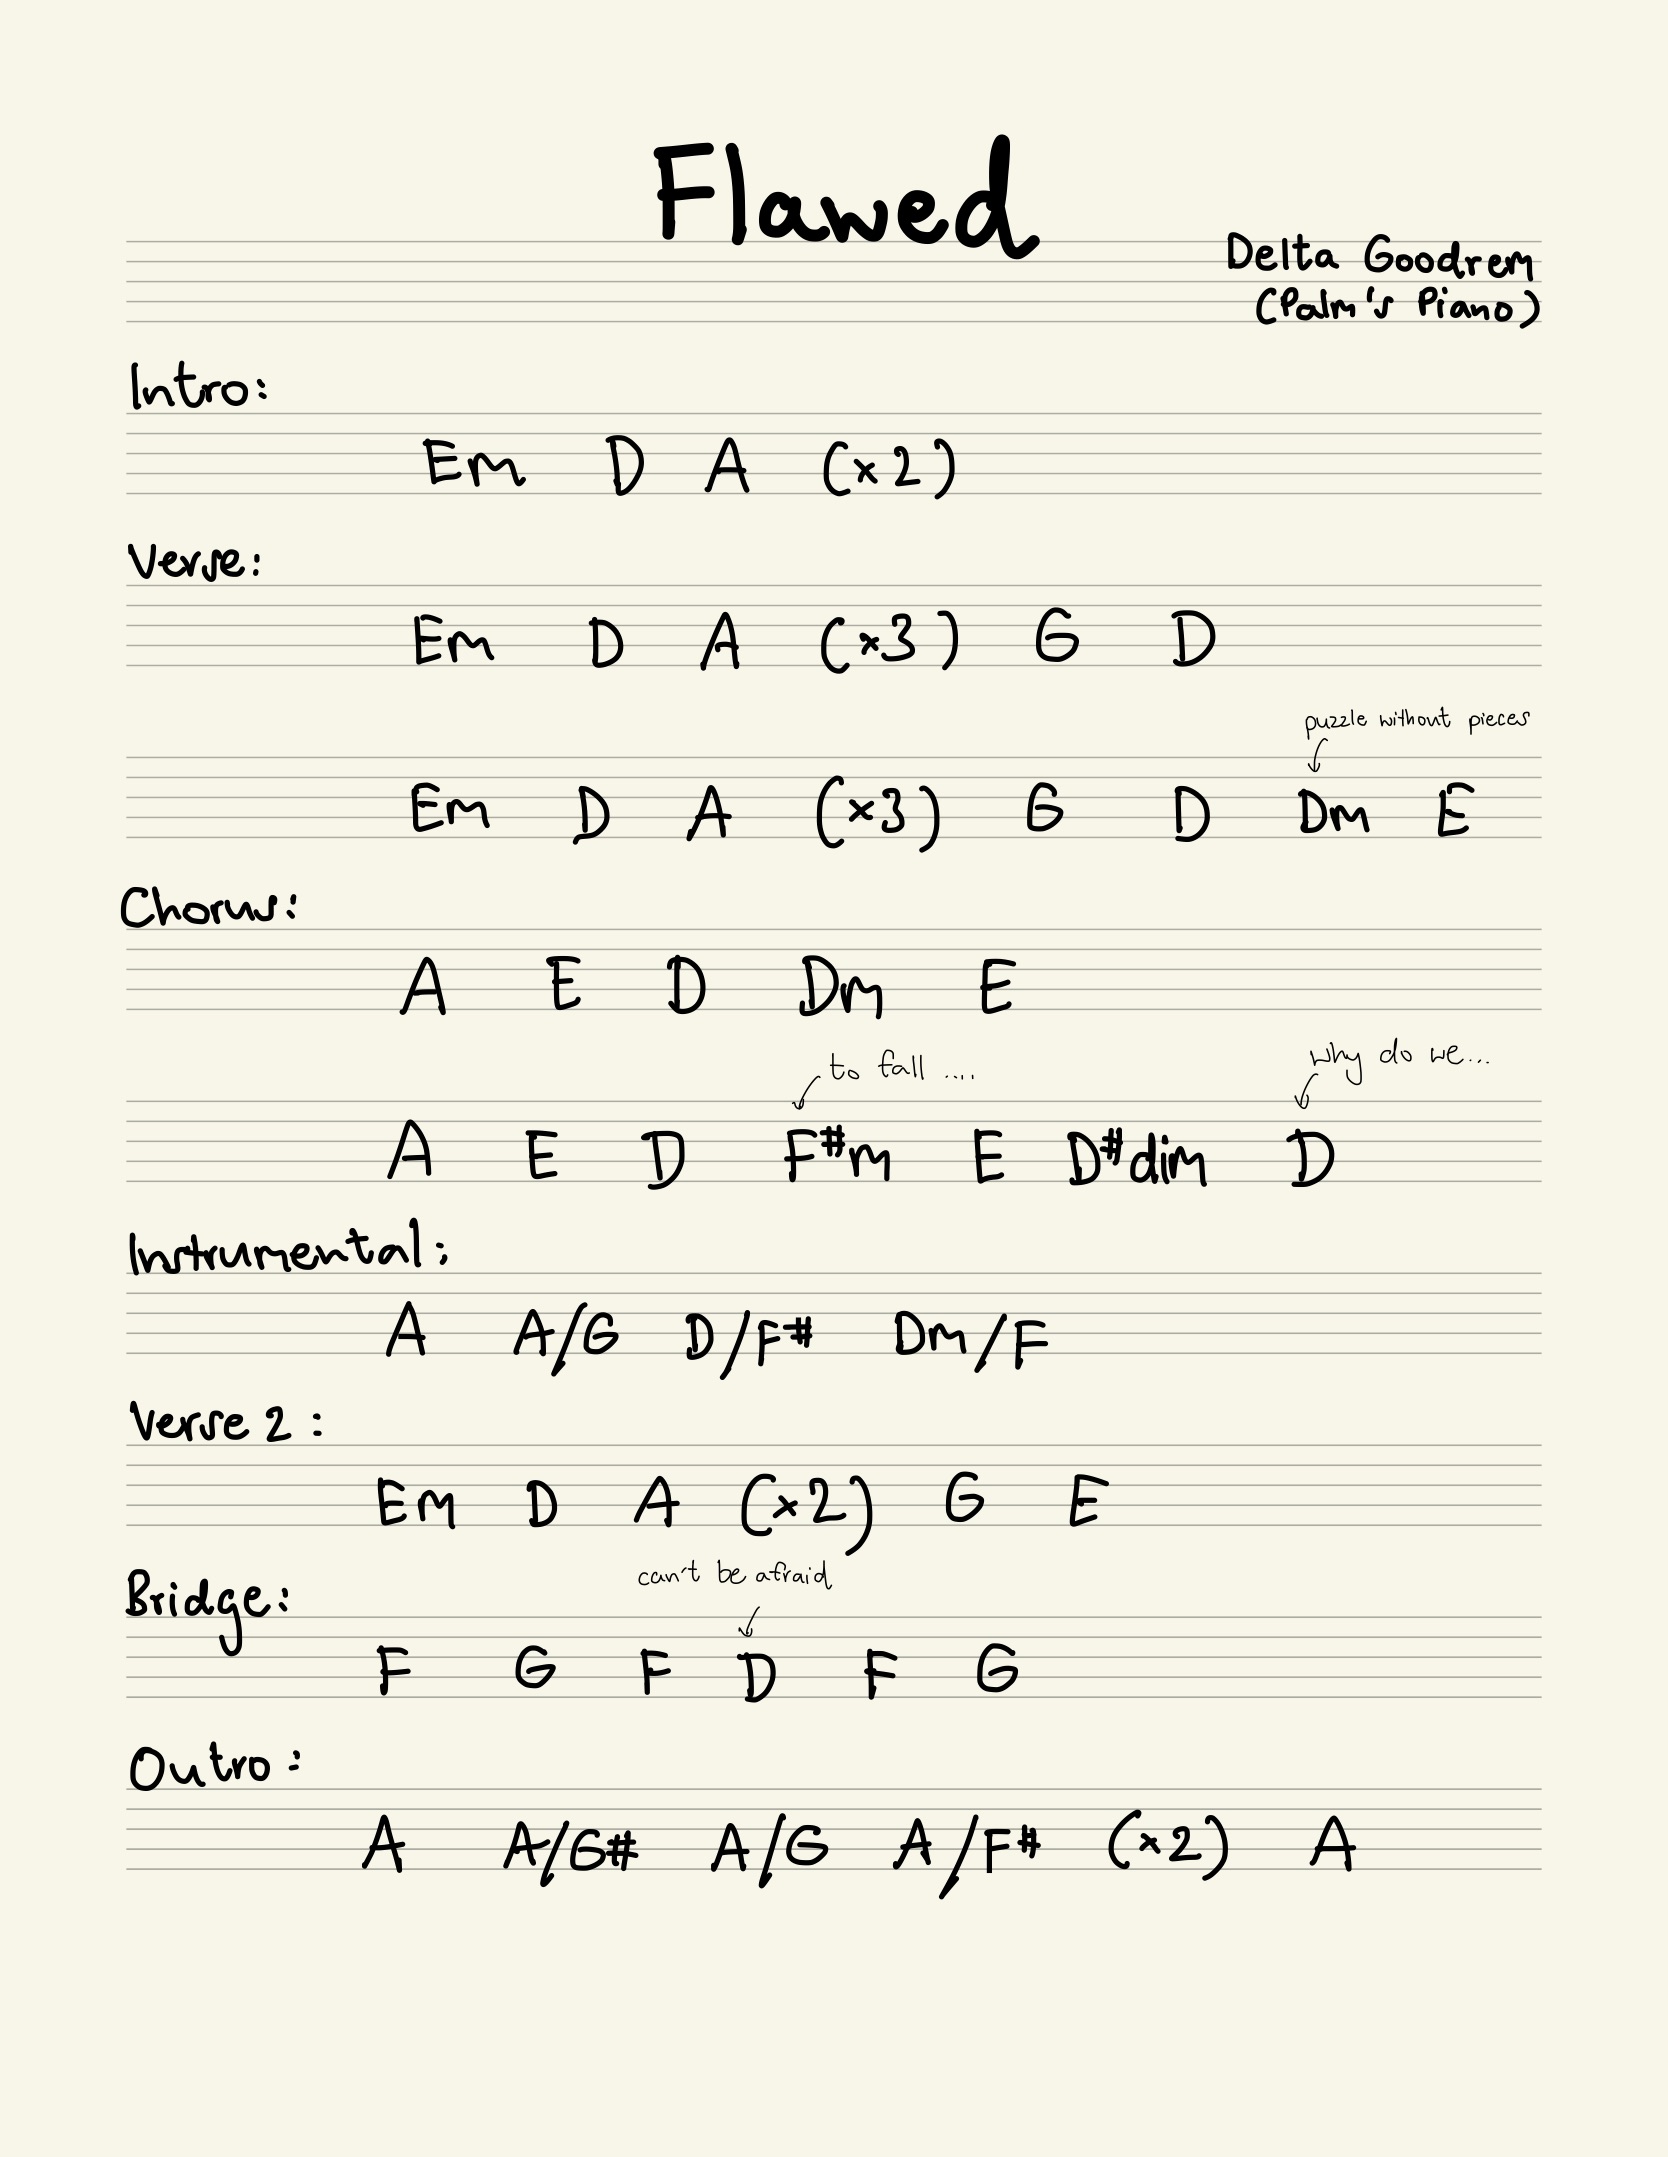 Flawed
Delta Goodrem
(Palm's Piano)
Intro:
Em D A (x2)
Verse:
Em D A (x3) G D
puzzle without pieces
Em D A (x3) G D Dm E
Chorus:
A E D Dm E
to fall .... why do we...
A E D F#m E D#dim D
Instrumental:
A A/G D/F# Dm/F
Verse 2:
Em D A (x2) G E
can't be afraid
Bridge:
F G F D F G
Outro:
A A/G# A/G A/F# (x2) A